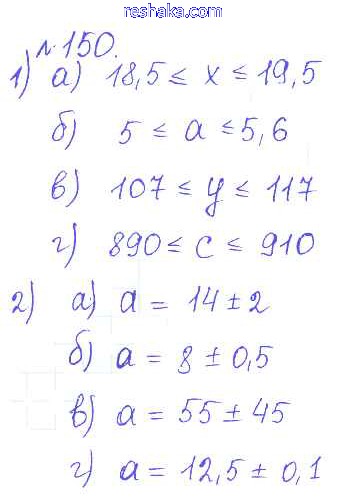 reshaka.com
№150.
1) а) 18,5 ≤ x ≤ 19,5
б) 5 ≤ a ≤ 5,6
в) 107 ≤ y ≤ 117
г) 890 ≤ c ≤ 910
2) а) a = 14 ± 2
б) a = 8 ± 0,5
в) a = 55 ± 45
г) a = 12,5 ± 0,1